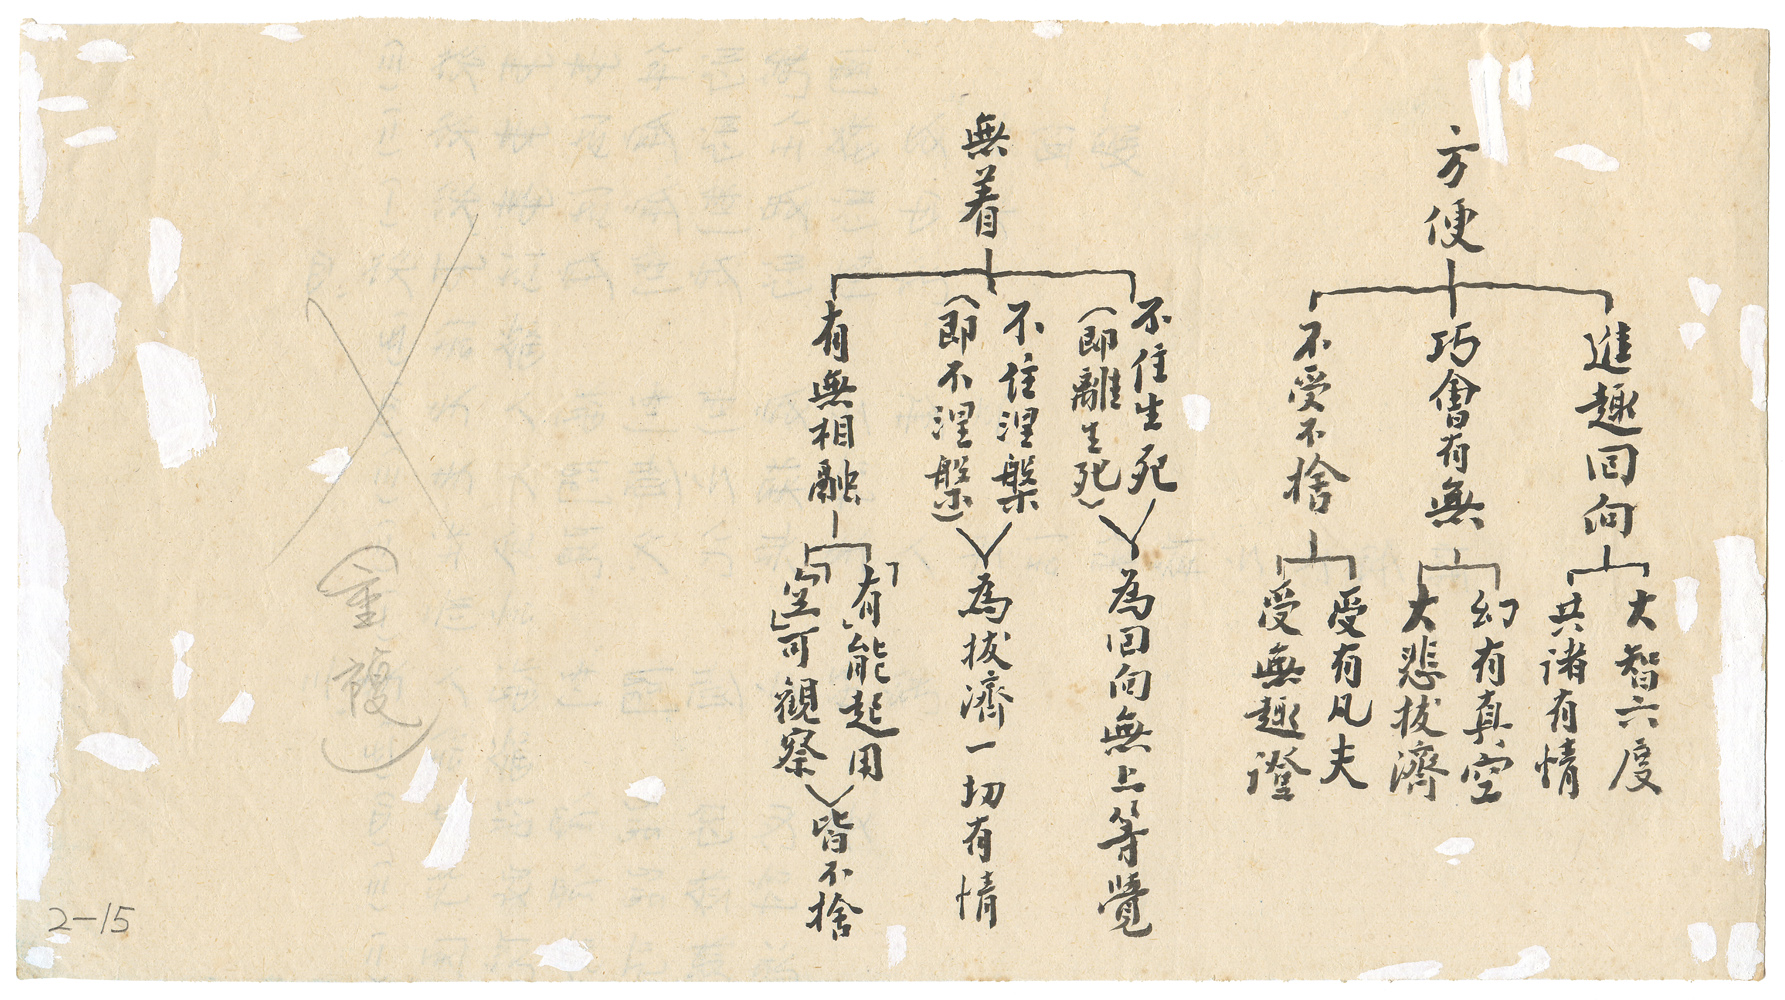 方便
進趣回向
大智六度
共諸有情
巧會有無
幻有真空
大悲拔濟
不受不捨
受有凡夫
受無趣證
無着
不住生死
(即離生死)
為回向無上等覺
不住涅槃
(即不涅槃)
為拔濟一切有情
有無相融
「有」能起用
「空」可觀察
皆不捨
(重複)
2-15